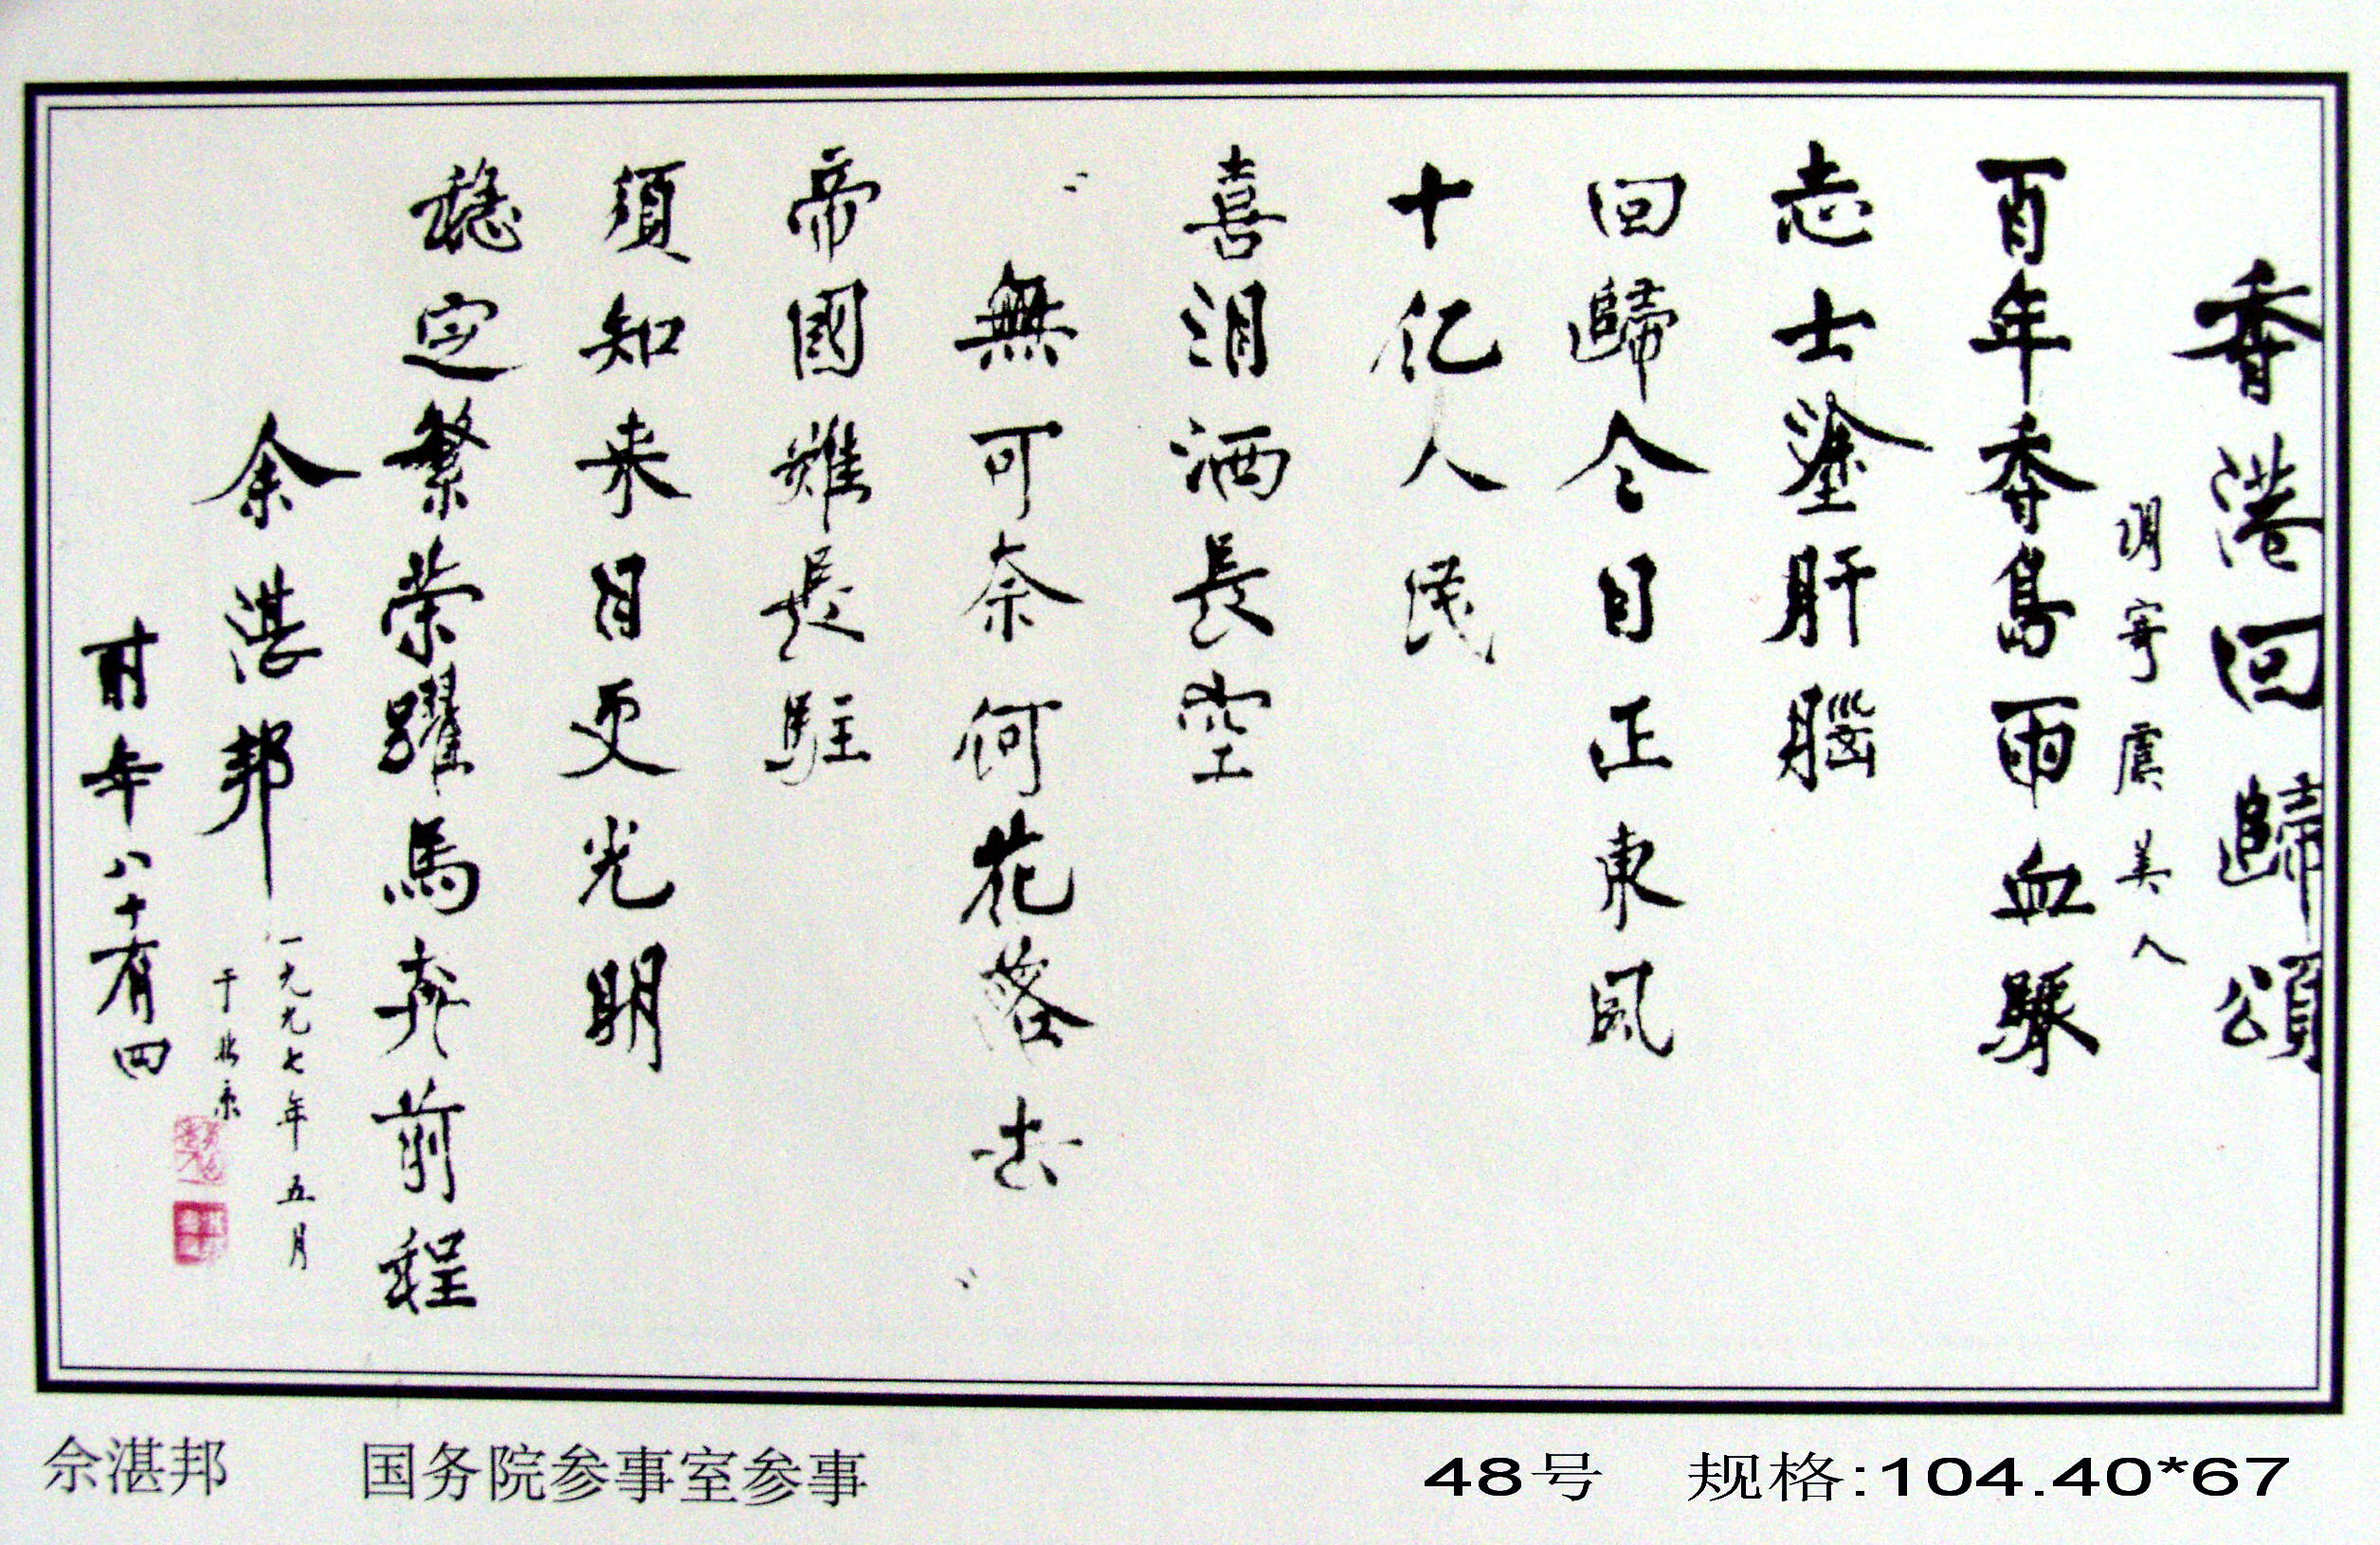 香港回歸頌
調寄虞美人
百年香島雨血腥
志士塗肝腦
回歸今日正東風
十亿人民
喜泪洒長空
“無可奈何花落去”
帝國難長駐
須知来日更光明
穩定繁荣躍馬奔前程
余湛邦
一九九七年五月
于北京
時年八十有四
佘湛邦 国务院参事室参事 48号 规格:104.40*67